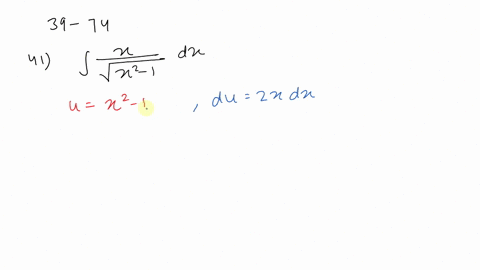 39-74
41) ∫ x/√(x²-1) dx
u = x²-1 , du = 2x dx